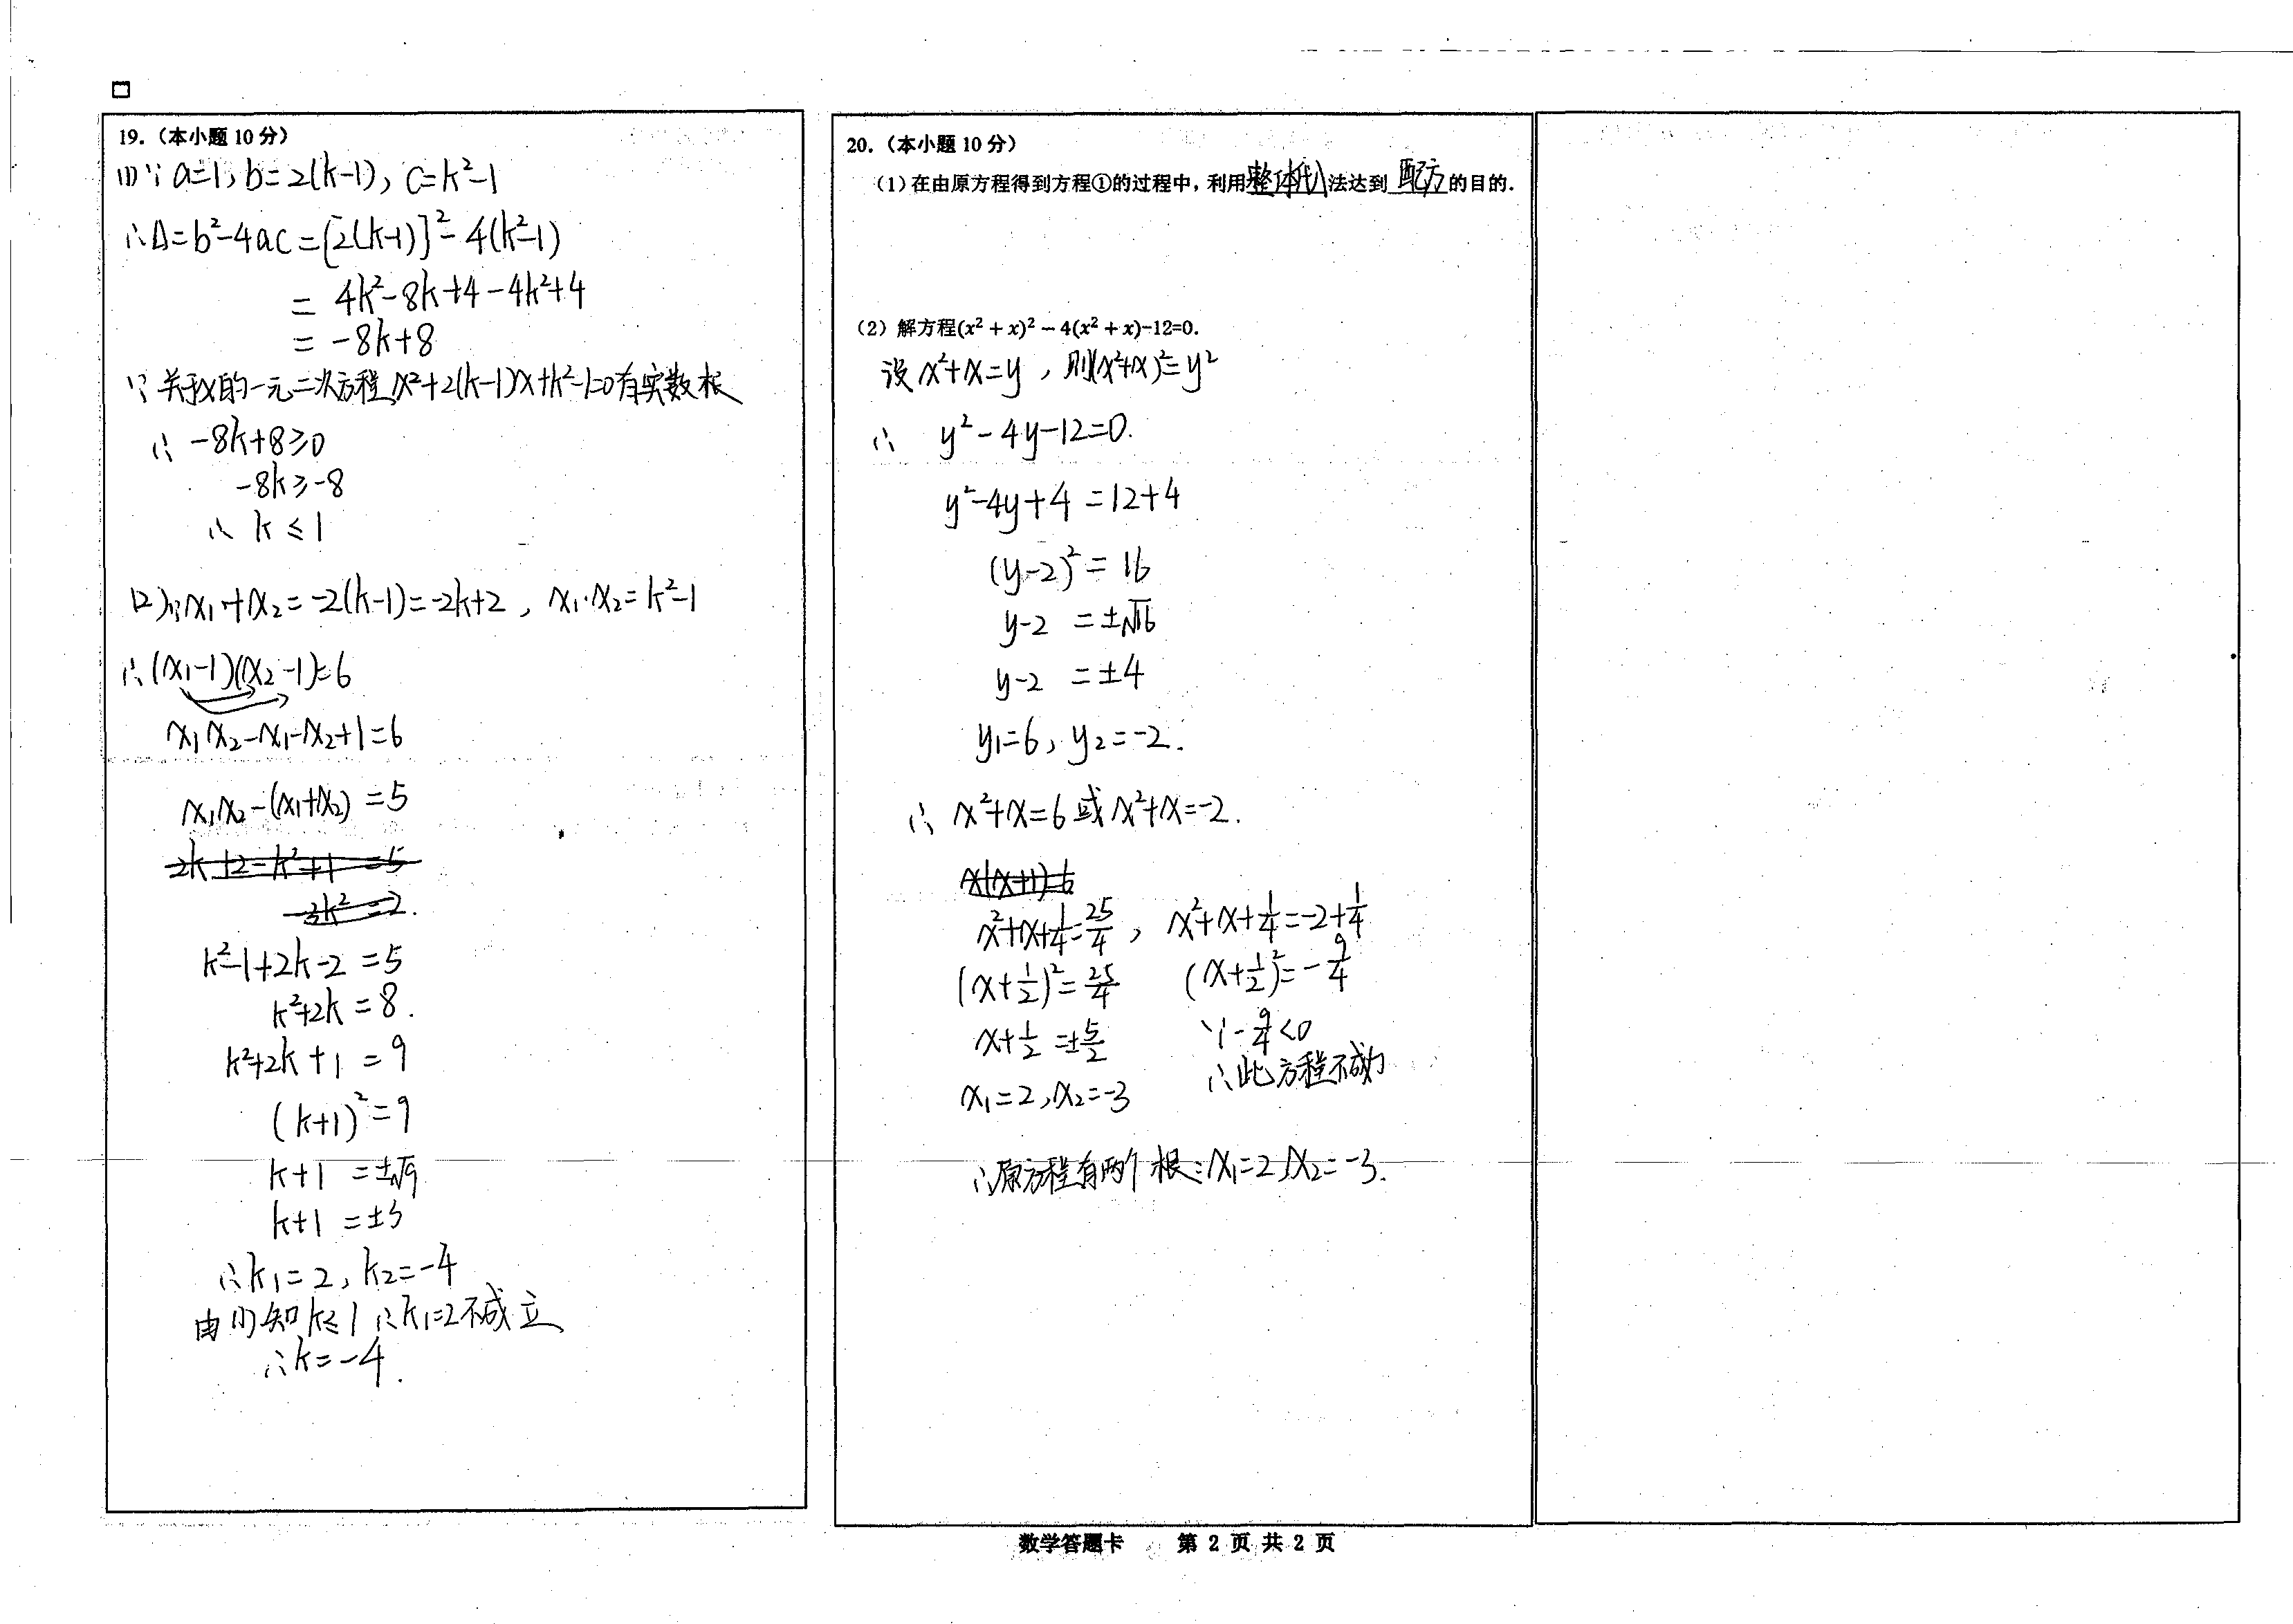 19.（本小题 10 分）
(1)∵a=1, b=2(k-1), c=k²-1
∴Δ=b²-4ac=[2(k-1)]²-4(k²-1)
= 4k²-8k+4-4k²+4
= -8k+8
∵关于x的一元二次方程x²+2(k-1)x+k²-1=0有实数根
∴ -8k+8≥0
-8k≥-8
∴ k≤1
(2)∵x₁+x₂=-2(k-1)=-2k+2, x₁·x₂=k²-1
∴(x₁-1)(x₂-1)=6
x₁x₂-x₁-x₂+1=6
x₁x₂-(x₁+x₂)=5
k²-1+2k-2=5
k²+2k=8.
k²+2k+1=9
(k+1)²=9
k+1=±√9
k+1=±3
∴k₁=2, k₂=-4
由(1)知k≤1∴k₁=2不成立
∴k=-4.
20.（本小题 10 分）
（1）在由原方程得到方程①的过程中，利用整体代入法达到 配方 的目的.
（2）解方程(x² + x)² − 4(x² + x)-12=0.
设x²+x=y，则(x²+x)²=y²
∴ y²-4y-12=0.
y²-4y+4=12+4
(y-2)²=16
y-2=±√16
y-2=±4
y₁=6, y₂=-2.
∴ x²+x=6或x²+x=-2.
x(x+1)=6
x²+x+1/4=25/4, x²+x+1/4=-2+1/4
(x+1/2)²=25/4 (x+1/2)²=-9/4
x+1/2=±5/2 ∵-9/4<0
x₁=2, x₂=-3 ∴此方程不成立
∴原方程有两个根:x₁=2,x₂=-3.
数学答题卡 第 2 页 共 2 页